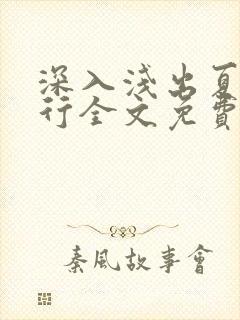 深入淺出夏
行全文免費
秦風故事會